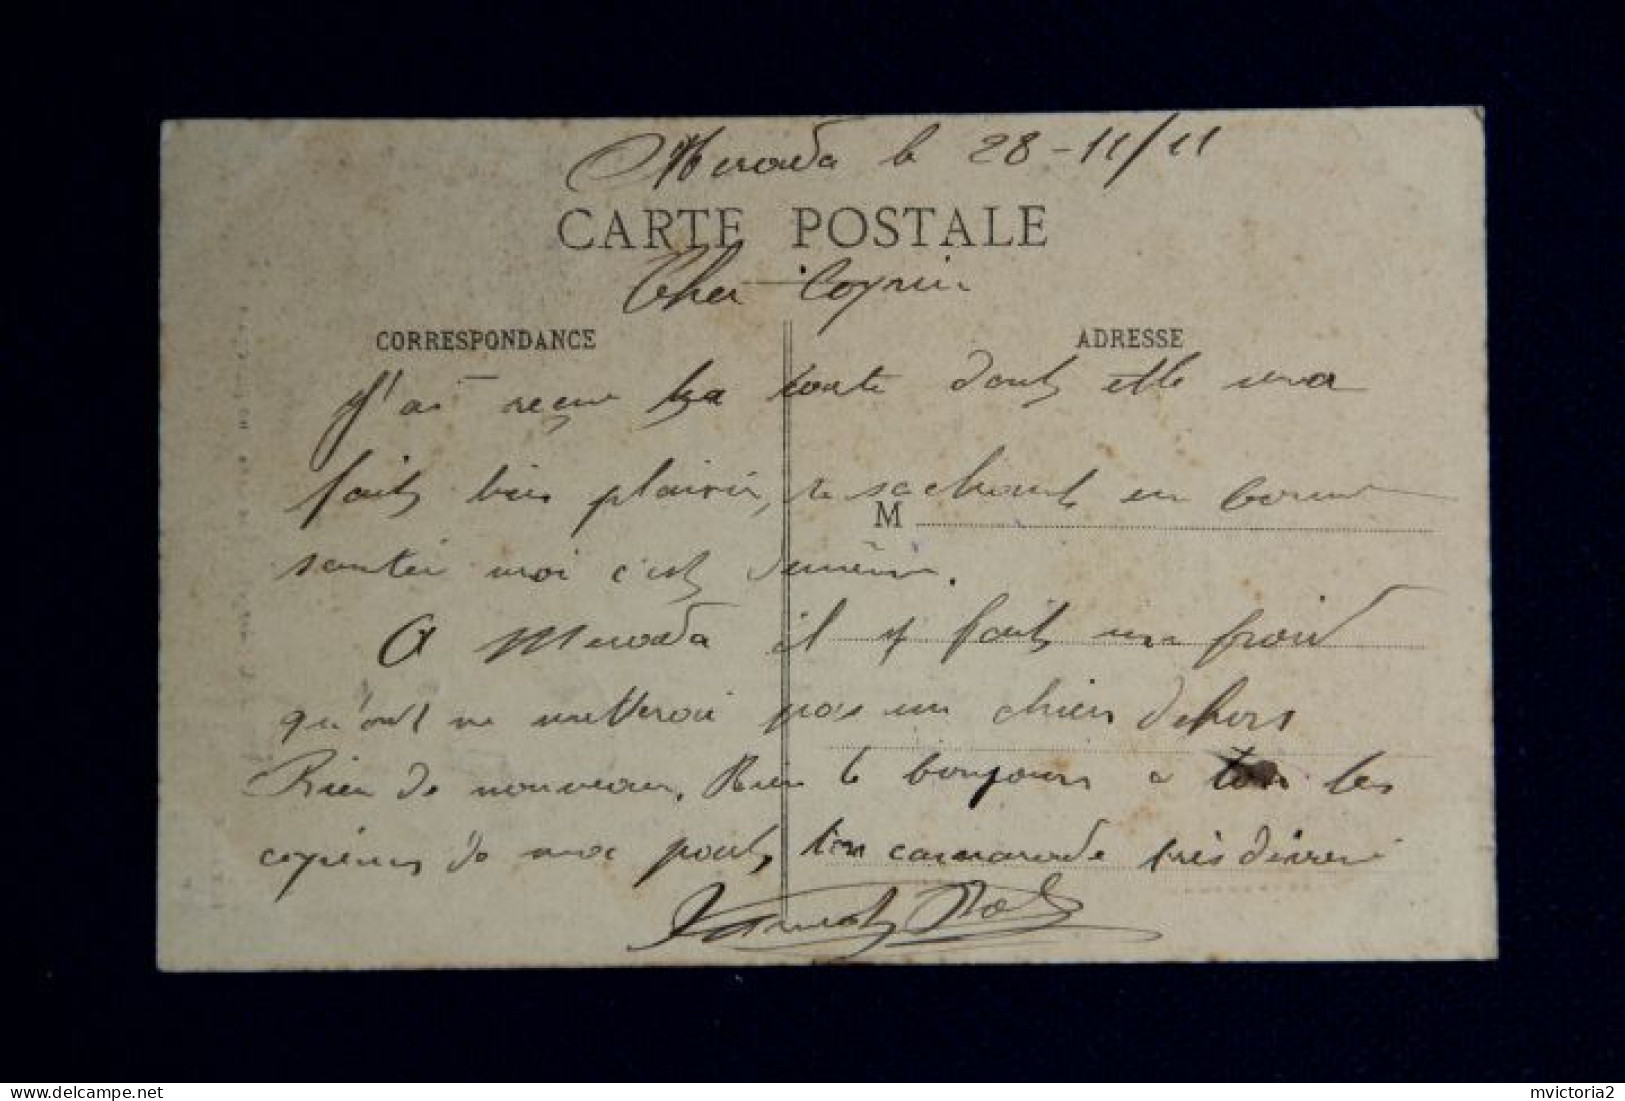 Merada le 28-11/11
CARTE POSTALE
Cher Copain
CORRESPONDANCE
ADRESSE
J'ai reçue ta carte dont elle ma
fait bien plaisir, te sachant en bonne
M
santée moi c'est de même.
A Merada il y fait un froid
qu'ont ne metteroi pas un chien dehors
Rien de nouveau. Bien le bonjours a tous les
copains de ma part, ton camarade très dévoué
Ernest
delcampe.net
mvictoria2